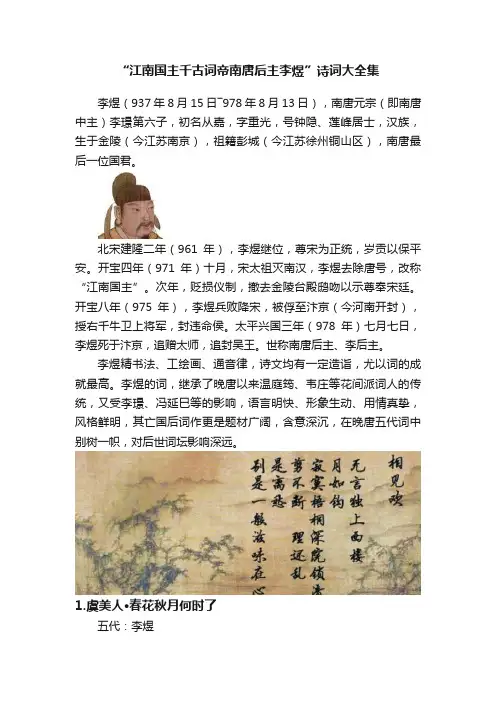 “江南国主千古词帝南唐后主李煜”诗词大全集
李煜（937年8月15日~978年8月13日），南唐元宗（即南唐
中主）李璟第六子，初名从嘉，字重光，号钟隐、莲峰居士，汉族，
生于金陵（今江苏南京），祖籍彭城（今江苏徐州铜山区），南唐最
后一位国君。
北宋建隆二年（961年），李煜继位，尊宋为正统，岁贡以保平
安。开宝四年（971年）十月，宋太祖灭南汉，李煜去除唐号，改称
“江南国主”。次年，贬损仪制，撤去金陵台殿鸱吻以示尊奉宋廷。
开宝八年（975年），李煜兵败降宋，被俘至汴京（今河南开封），
授右千牛卫上将军，封违命侯。太平兴国三年（978年）七月七日，
李煜死于汴京，追赠太师，追封吴王。世称南唐后主、李后主。
李煜精书法、工绘画、通音律，诗文均有一定造诣，尤以词的成
就最高。李煜的词，继承了晚唐以来温庭筠、韦庄等花间派词人的传
统，又受李璟、冯延巳等的影响，语言明快、形象生动、用情真挚，
风格鲜明，其亡国后词作更是题材广阔，含意深沉，在晚唐五代词中
别树一帜，对后世词坛影响深远。
相见欢
无言独上西楼
月如钩
寂寞梧桐深院锁清
剪不断 理还乱
是离愁
别是一般滋味在心
1.虞美人·春花秋月何时了
五代：李煜